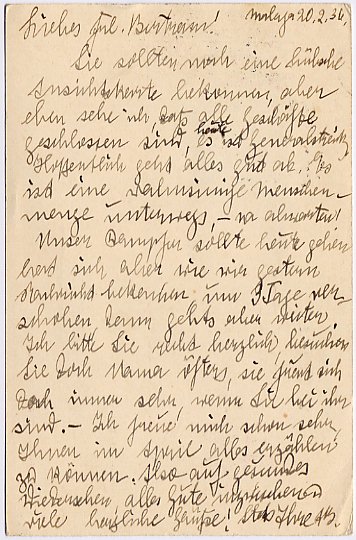 Liebes Frl. Bertram! Malaga 20.2.36.
Sie sollten noch eine hübsche
Ansichtskarte bekommen, aber
eben sehe ich, daß alle Geschäfte
geschlossen sind, heute es ist Generalstreik
Hoffentlich geht alles gut ab. Es
ist eine wahnsinnige Menschen-
menge unterwegs –
Unser Dampfer sollte heute gehen
hat sich aber wie wir gestern
Nachricht bekamen um 3 Tage ver-
schoben, dann gehts aber weiter.
Ich bitte Sie recht herzlich besuchen
Sie doch Mama öfters, sie freut sich
doch immer sehr, wenn Sie bei ihr
sind. – Ich freue mich schon sehr
Ihnen im April alles erzählen
zu können. Also auf gesundes
Wiedersehen, alles Gute
viele herzliche Grüße! Stets Ihre